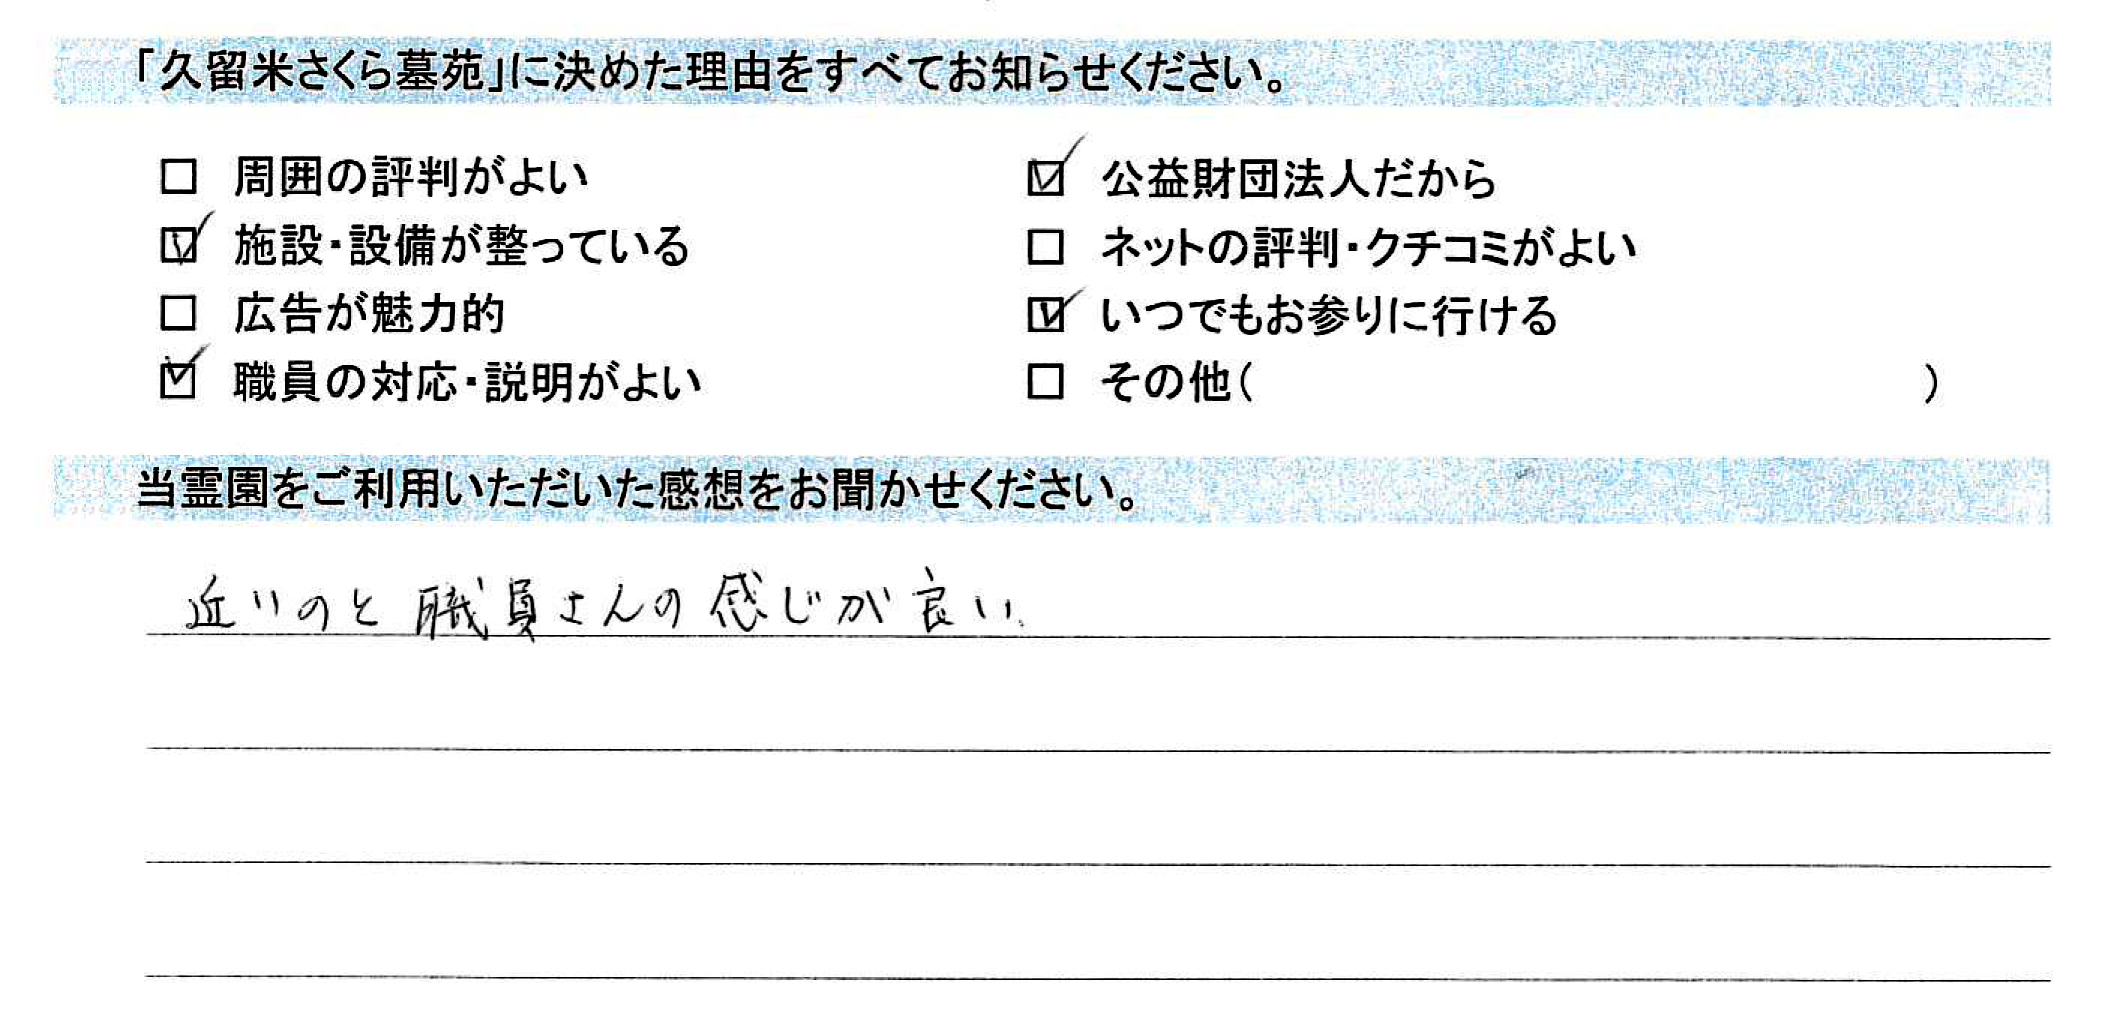 「久留米さくら墓苑」に決めた理由をすべてお知らせください。
□ 周囲の評判がよい
☑ 公益財団法人だから
☑ 施設・設備が整っている
□ ネットの評判・クチコミがよい
□ 広告が魅力的
☑ いつでもお参りに行ける
☑ 職員の対応・説明がよい
□ その他( )
当霊園をご利用いただいた感想をお聞かせください。
近いのと職員さんの感じが良い